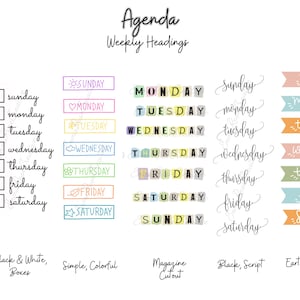 Agenda
Weekly Headings
sunday
monday
tuesday
wednesday
thursday
friday
saturday
SUNDAY
MONDAY
TUESDAY
WEDNESDAY
THURSDAY
FRIDAY
SATURDAY
MONDAY
TUESDAY
WEDNESDAY
THURSDAY
FRIDAY
SATURDAY
SUNDAY
sunday
monday
tuesday
wednesday
thursday
friday
saturday
lack & White,
Boxes
Simple, Colorful
Magazine
Cutout
Black, Script
Eart